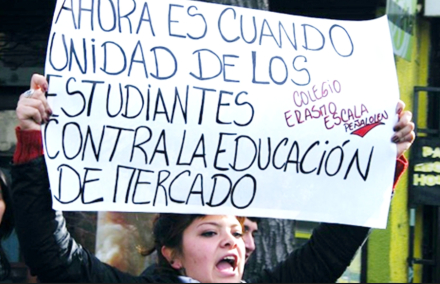 AHORA ES CUANDO
UNIDAD DE LOS
ESTUDIANTES
CONTRA LA EDUCACIÓN
DE MERCADO
COLEGIO
ERASMO
ESCALA
PEÑALOLEN